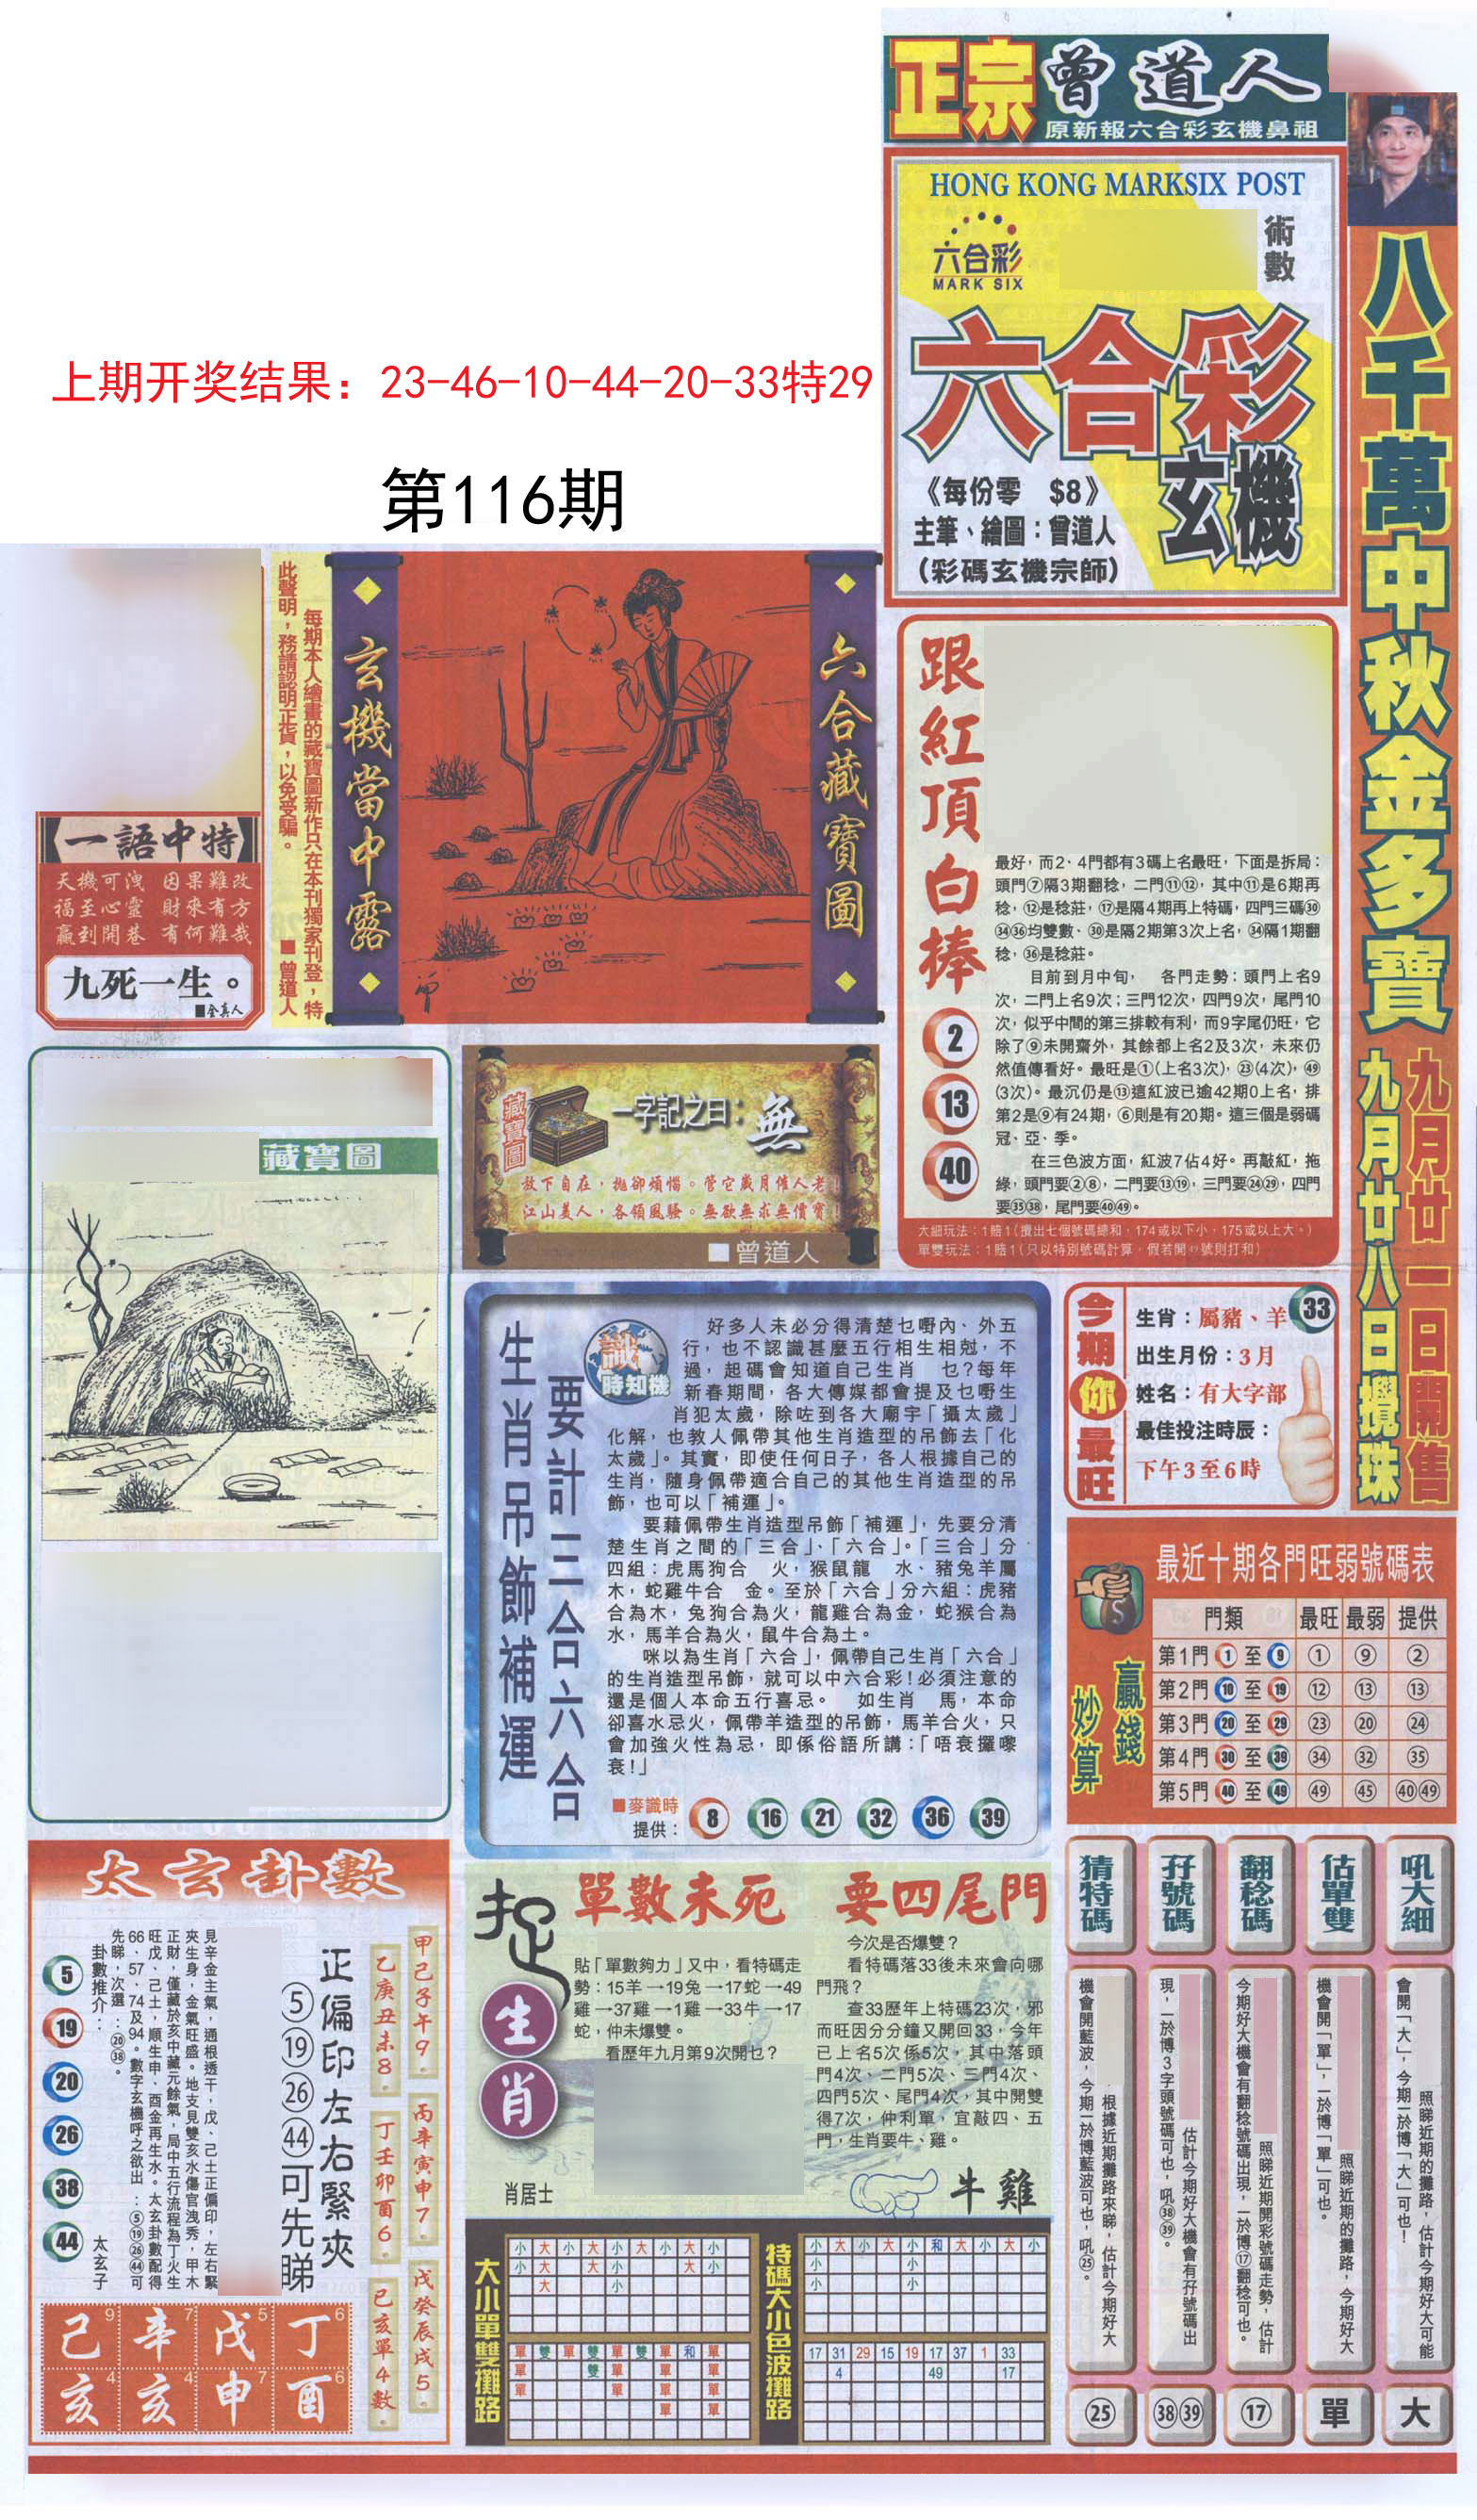 正宗曾道人
原新報六合彩玄機鼻祖
HONG KONG MARKSIX POST
六合彩
MARK SIX
術數
六合彩
玄機
《每份零　$8》
主筆、繪圖：曾道人
（彩碼玄機宗師）
八千萬中秋金多寶
九月廿一日開售
九月廿八日攪珠
上期开奖结果：23-46-10-44-20-33特29
第116期
一語中特
天機可洩　因果難改
福至心靈　財來有方
贏到開巷　有何難哉
九死一生。
■全真人
每期本人繪畫的藏寶圖新作只在本刊獨家刊登，特
此聲明，務請認明正貨，以免受騙。　■曾道人
玄機當中露
六合藏寶圖
跟紅頂白棒
2
13
40
最好，而2、4門都有3碼上名最旺，下面是拆局：
頭門⑦隔3期翻稔，二門⑪⑫，其中⑪是6期再
稔，⑫是稔莊，⑰是隔4期再上特碼，四門三碼㉚
㉞㊱均雙數、㉚是隔2期第3次上名，㉞隔1期翻
稔，㊱是稔莊。
目前到月中旬，　各門走勢：頭門上名9
次，二門上名9次；三門12次，四門9次，尾門10
次，似乎中間的第三排較有利，而9字尾仍旺，它
除了⑨未開齋外，其餘都上名2及3次，未來仍
然值傳看好。最旺是①(上名3次)，㉓(4次)，㊾
(3次)。最沉仍是⑬這紅波已逾42期0上名，排
第2是⑨有24期，⑥則是有20期。這三個是弱碼
冠、亞、季。
在三色波方面，紅波7佔4好。再敲紅，拖
綠，頭門要②⑧，二門要⑬⑲，三門要㉔㉙，四門
要㉟㊳，尾門要㊵㊾。
大細玩法：1賠1（攪出七個號碼總和，174或以下小，175或以上大。）
藏寶圖
藏寶圖
一字記之曰：無
放下自在，拋卻煩惱。管它歲月催人老！
江山美人，各領風騷。無欲無求無價寶！
■曾道人
生肖吊飾補運
要計三合六合
識時知機
好多人未必分得清楚乜嘢內、外五
行，也不認識甚麼五行相生相尅，不
過，起碼會知道自己生肖　乜？每年
新春期間，各大傳媒都會提及乜嘢生
肖犯太歲，除咗到各大廟宇「攝太歲」
化解，也教人佩帶其他生肖造型的吊飾去「化
太歲」。其實，即使任何日子，各人根據自己的
生肖，隨身佩帶適合自己的其他生肖造型的吊
飾，也可以「補運」。
要藉佩帶生肖造型吊飾「補運」，先要分清
楚生肖之間的「三合」、「六合」。「三合」分
四組：虎馬狗合　火，猴鼠龍　水、豬兔羊屬
木，蛇雞牛合　金。至於「六合」分六組：虎豬
合為木，兔狗合為火，龍雞合為金，蛇猴合為
水，馬羊合為火，鼠牛合為土。
咪以為生肖「六合」，佩帶自己生肖「六合」
的生肖造型吊飾，就可以中六合彩！必須注意的
還是個人本命五行喜忌。　如生肖　馬，本命
卻喜水忌火，佩帶羊造型的吊飾，馬羊合火，只
會加強火性為忌，即係俗語所講：「唔衰攞嚟
衰！」
■麥識時
提供：
8 16 21 32 36 39
今期你最旺
生肖：屬豬、羊 33
出生月份：3月
姓名：有大字部
最佳投注時辰：
下午3至6時
最近十期各門旺弱號碼表
贏錢
妙算
門類 最旺 最弱 提供
第1門 1 至 9 ① ⑨ ②
第2門 10 至 19 ⑫ ⑬ ⑬
第3門 20 至 29 ㉓ ⑳ ㉔
第4門 30 至 39 ㉞ ㉜ ㉟
第5門 40 至 49 ㊾ ㊺ ㊵㊾
太玄卦數
甲己子午9。　丙辛寅申7。　戊癸辰戌5。
乙庚丑未8。　丁壬卯酉6。　己亥單4數。
正偏印左右緊夾
⑤⑲㉖㊹可先睇
見辛金主氣，通根透干，戊、己土正偏印，左右緊
夾生身，金氣旺盛。地支見雙亥水傷官洩秀，甲木
正財，僅藏於亥中藏元餘氣，局中五行流程為丁火生
旺戊、己土，順生申、酉金再生水。太玄卦數配得
66、57、74及94。數字玄機呼之欲出：⑤⑲㉖㊹可
先睇，次選：⑳㊳。
卦數推介：
5
19
20
26
38
44
太玄子
己9 辛7 戊5 丁6
亥4 亥4 申7 酉6
捉生肖
單數未死　要四尾門
貼「單數夠力」又中，看特碼走
勢：15羊→19兔→17蛇→49
雞→37雞→1雞→33牛→17
蛇，仲未爆雙。
看歷年九月第9次開乜？
肖居士
今次是否爆雙？
看特碼落33後未來會向哪
門飛？
查33歷年上特碼23次，邪
而旺因分分鐘又開回33，今年
已上名5次係5次，其中落頭
門4次、二門5次、三門4次、
四門5次、尾門4次，其中開雙
得7次，仲利單，宜敲四、五
門，生肖要牛、雞。
牛雞
大小單雙攤路
小 大 小 大 小 大 小 大 小
小 大 大 小 大 小
大 小
單 雙 單 雙 單 雙 單 和 單
單 雙 單 單 單
單 單 單 單
單 單
特碼大小色波攤路
小 大 小 大 小 和 大 小 大 小
小 小
小 小
17 31 29 15 19 17 37 1 33
4 49 17
猜特碼
根據近期攤路來睇，估計今期好大
機會開藍波，今期一於博藍波可也，吼㉕。
㉕
孖號碼
估計今期好大機會有孖號碼出
現，一於博3字頭號碼可也，吼㊳㊴。
㊳㊴
翻稔碼
照睇近期開彩號碼走勢，估計
今期好大機會有翻稔號碼出現，一於博⑰翻稔可也。
⑰
估單雙
照睇近期的攤路，今期好大
機會開「單」，一於博「單」可也。
單
吼大細
照睇近期的攤路，估計今期好大可能
會開「大」，今期一於博「大」可也！
大